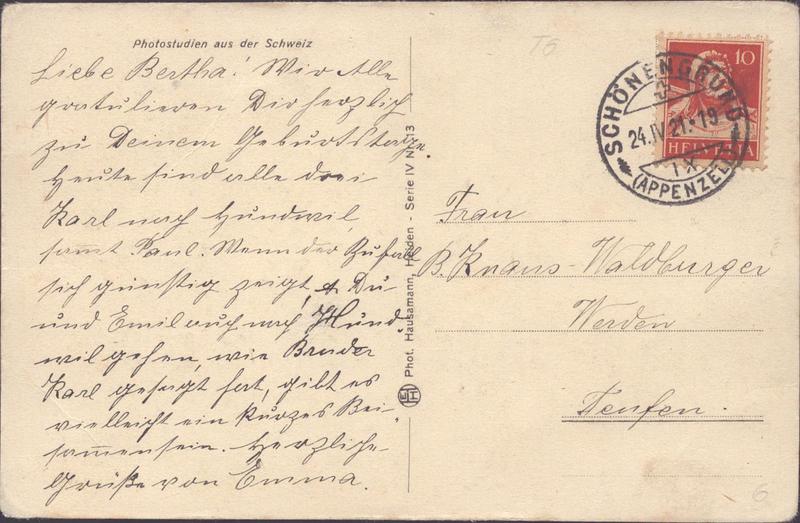 Photostudien aus der Schweiz
Liebe Bertha! Wir Alle
gratulieren Dir herzlich
zu Deinem Geburtstage
Heute sind alle drei
Karl nach Hundwil,
samt Paul. Wenn der Zufall
sich günstig zeigt, & Du
und Emil auch nach Hund-
wil gehen, wie Bruder
Karl gesagt hat, gibt es
vielleicht ein kurzes Bei-
sammensein. Herzliche
Grüße von Emma.
Phot. Hausamann, Heiden - Serie IV Nr. 13
EHH
T6
10
HELVETIA
SCHÖNENGRUND
24.IV.21.-19
IX
(APPENZELL)
Frau
B. Knaus-Waldburger
Werden
Teufen.
6